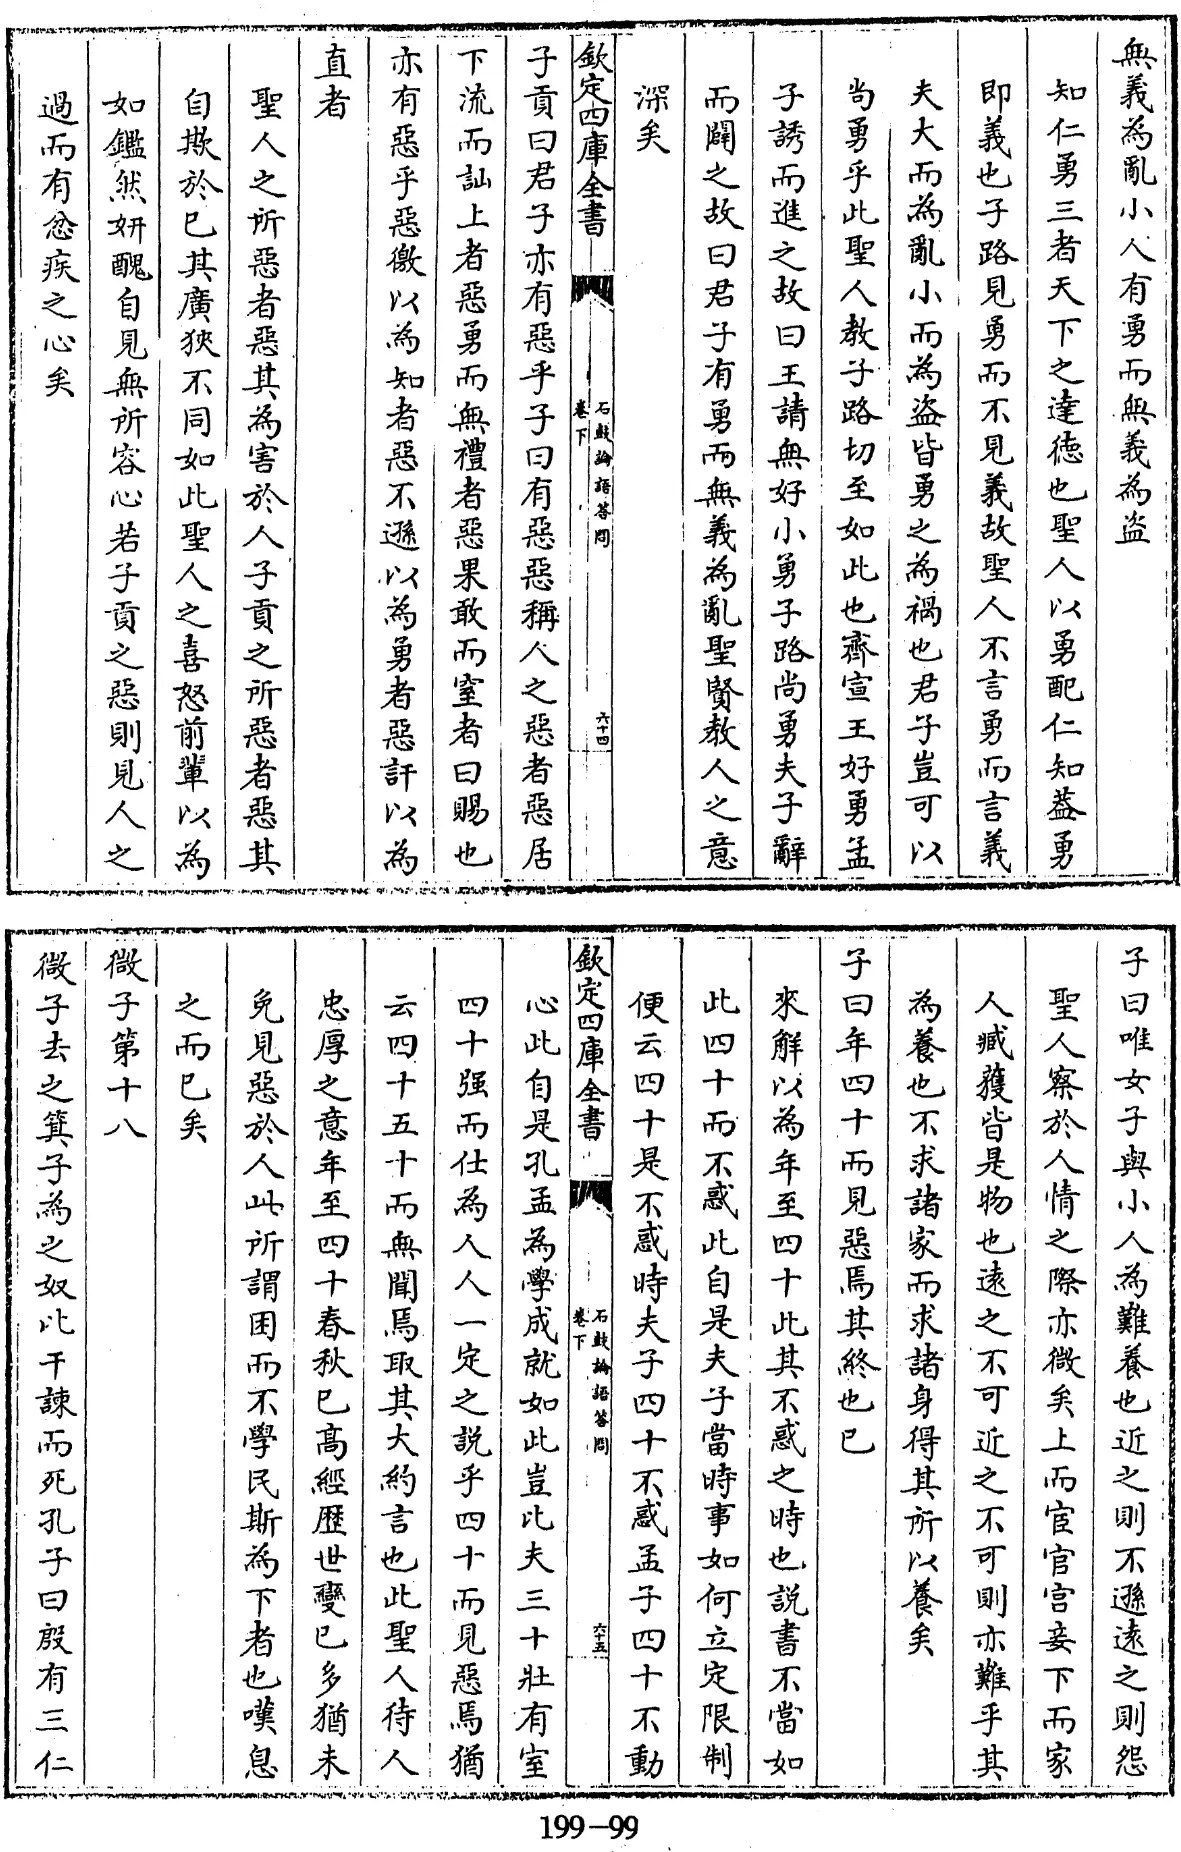 無義為亂小人有勇而無義為盜
知仁勇三者天下之達徳也聖人以勇配仁知葢勇
即義也子路見勇而不見義故聖人不言勇而言義
夫大而為亂小而為盜皆勇之為禍也君子豈可以
尚勇乎此聖人教子路切至如此也齊宣王好勇孟
子誘而進之故曰王請無好小勇子路尚勇夫子辭
而闢之故曰君子有勇而無義為亂聖賢教人之意
深矣
欽定四庫全書
石鼓論語答問
卷下
六十四
子貢曰君子亦有惡乎子曰有惡惡稱人之惡者惡居
下流而訕上者惡勇而無禮者惡果敢而窒者曰賜也
亦有惡乎惡徼以為知者惡不遜以為勇者惡訐以為
直者
聖人之所惡者惡其為害於人子貢之所惡者惡其
自欺於已其廣狹不同如此聖人之喜怒前輩以為
如鑑然妍醜自見無所容心若子貢之惡則見人之
過而有忿疾之心矣
子曰唯女子與小人為難養也近之則不遜逺之則怨
聖人察於人情之際亦微矣上而宦官宫妾下而家
人臧獲皆是物也逺之不可近之不可則亦難乎其
為養也不求諸家而求諸身得其所以養矣
子曰年四十而見惡焉其終也已
來解以為年至四十此其不惑之時也説書不當如
此四十而不惑此自是夫子當時事如何立定限制
便云四十是不惑時夫子四十不惑孟子四十不動
欽定四庫全書
石鼓論語答問
卷下
六十五
心此自是孔孟為學成就如此豈比夫三十壯有室
四十强而仕為人人一定之説乎四十而見惡焉猶
云四十五十而無聞焉取其大約言也此聖人待人
忠厚之意年至四十春秋已髙經歴世變已多猶未
免見惡於人此所謂困而不學民斯為下者也嘆息
之而已矣
微子第十八
微子去之箕子為之奴比干諫而死孔子曰殷有三仁
199-99